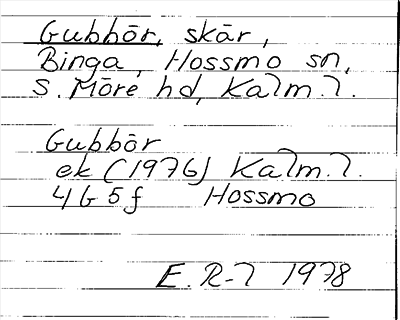 Gubbör, skär,
Binga, Hossmo sn,
S. Möre hd, Kalm. l.
Gubbör
ek (1976) Kalm. l.
4 G 5 f Hossmo
E. R-l 1978